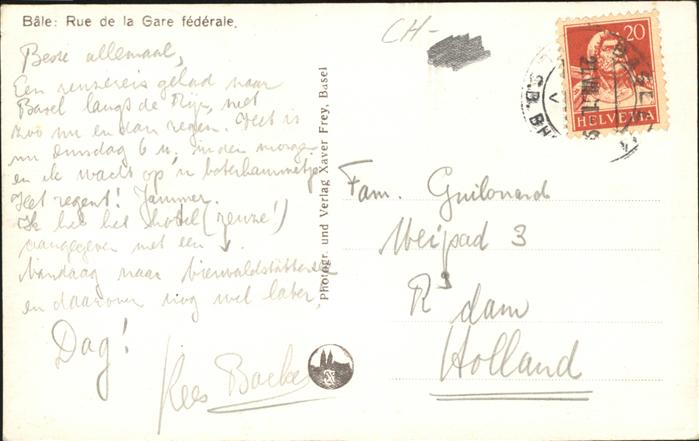 Bâle: Rue de la Gare fédérale.
CH-
Beste allemaal,
Een reuzereis gehad naar
Basel langs de Rijn, met
zoo nu en dan regen. Het is
nu dinsdag 6 u. in den morgen
en ik wacht op 'n boterhammetje.
Het regent! Jammer.
Ik heb het hotel (reuze!)
aangegeven met een ↓.
Vandaag naar Vierwaldstättersee
en daarover nog wel later.
Dag!
Kees
Photogr. und Verlag Xaver Frey, Basel
20
HELVETIA
BASEL
Fam. Guilonard
Meipad 3
R'dam
Holland